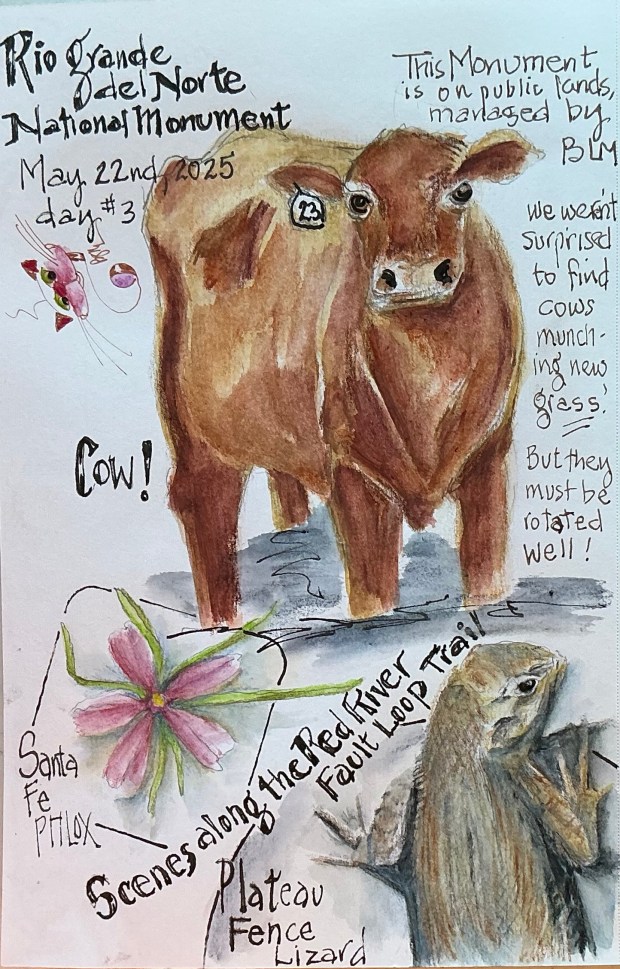 Rio grande
del Norte
National Monument
May 22nd, 2025
day #3
This Monument
is on public lands,
managed by
BLM
we weren't
surprised
to find
cows
munch-
ing new
grass!
But they
must be
rotated
well!
23
Cow!
Santa
Fe
PHLOX
Scenes along the Red River
Fault Loop Trail
Plateau
Fence
Lizard